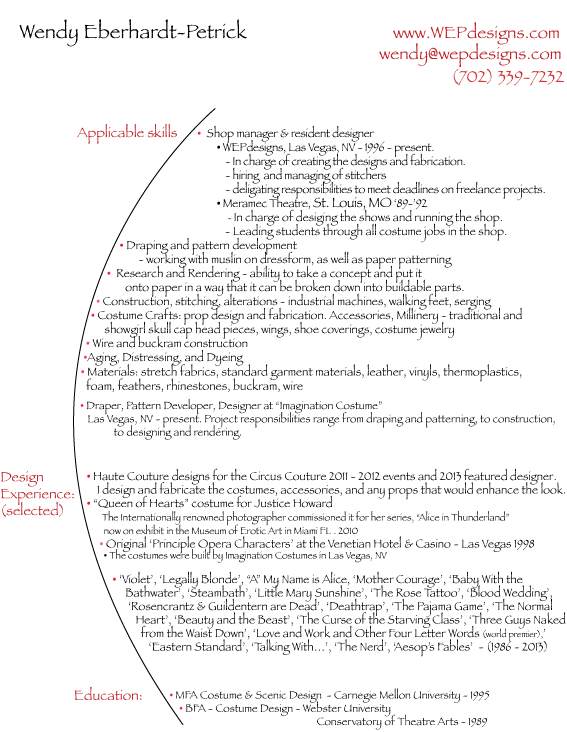 Wendy Eberhardt-Petrick
www.WEPdesigns.com
wendy@wepdesigns.com
(702) 339-7232
Applicable skills
• Shop manager & resident designer
• WEPdesigns, Las Vegas, NV - 1996 - present.
- In charge of creating the designs and fabrication.
- hiring and managing of stitchers
- deligating responsibilities to meet deadlines on freelance projects.
• Meramec Theatre, St. Louis, MO '89-'92
- In charge of desiging the shows and running the shop.
- Leading students through all costume jobs in the shop.
• Draping and pattern development
- working with muslin on dressform, as well as paper patterning
• Research and Rendering - ability to take a concept and put it
onto paper in a way that it can be broken down into buildable parts.
• Construction, stitching, alterations - industrial machines, walking feet, serging
• Costume Crafts: prop design and fabrication. Accessories, Millinery - traditional and
showgirl skull cap head pieces, wings, shoe coverings, costume jewelry
• Wire and buckram construction
•Aging, Distressing, and Dyeing
• Materials: stretch fabrics, standard garment materials, leather, vinyls, thermoplastics,
foam, feathers, rhinestones, buckram, wire
• Draper, Pattern Developer, Designer at "Imagination Costume"
Las Vegas, NV - present. Project responsibilities range from draping and patterning, to construction,
to designing and rendering.
Design
Experience:
(selected)
• Haute Couture designs for the Circus Couture 2011 - 2012 events and 2013 featured designer.
I design and fabricate the costumes, accessories, and any props that would enhance the look.
• "Queen of Hearts" costume for Justice Howard
The Internationally renowned photographer commissioned it for her series, "Alice in Thunderland"
now on exhibit in the Museum of Erotic Art in Miami FL . 2010
• Original 'Principle Opera Characters' at the Venetian Hotel & Casino - Las Vegas 1998
• The costumes were built by Imagination Costumes in Las Vegas, NV
• 'Violet', 'Legally Blonde', "A" My Name is Alice, 'Mother Courage', 'Baby With the
Bathwater', 'Steambath', 'Little Mary Sunshine', 'The Rose Tattoo', 'Blood Wedding',
'Rosencrantz & Guildentern are Dead', 'Deathtrap', 'The Pajama Game', 'The Normal
Heart', 'Beauty and the Beast', 'The Curse of the Starving Class', 'Three Guys Naked
from the Waist Down', 'Love and Work and Other Four Letter Words (world premier),'
'Eastern Standard', 'Talking With...', 'The Nerd', 'Aesop's Fables' - (1986 - 2013)
Education:
• MFA Costume & Scenic Design - Carnegie Mellon University - 1995
• BFA - Costume Design - Webster University
Conservatory of Theatre Arts - 1989